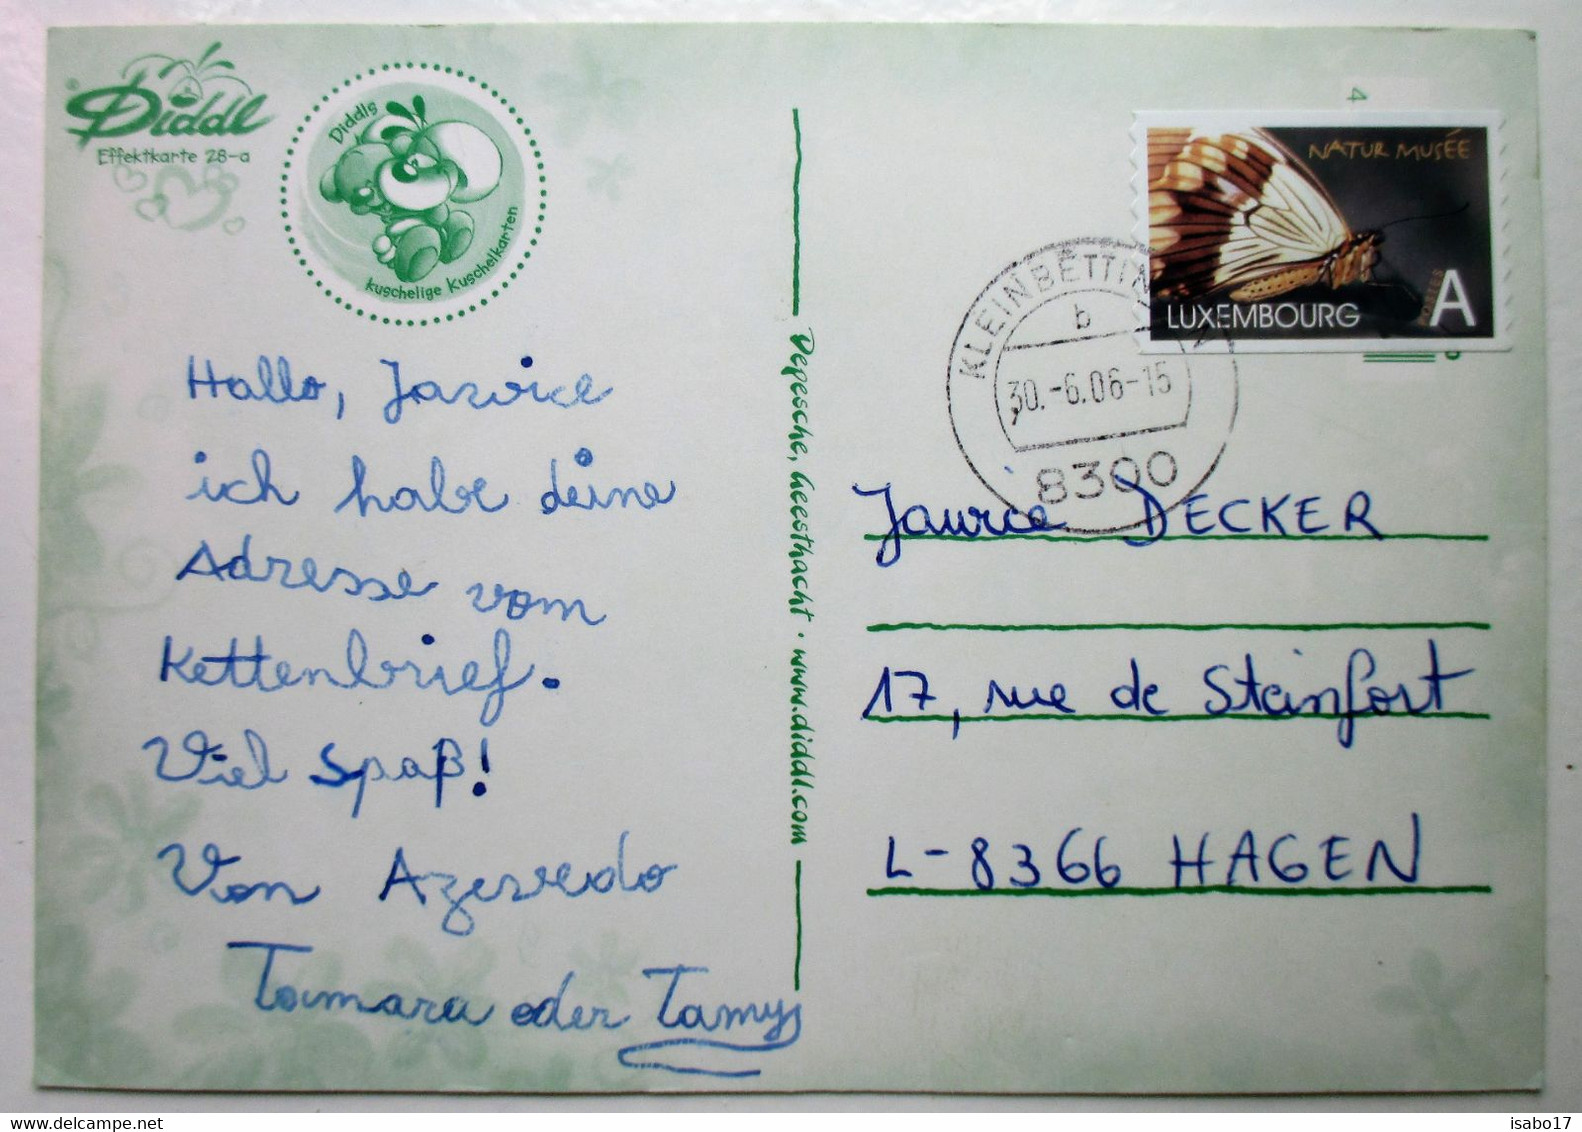 Diddl
Effektkarte 28-a
Diddls
kuschelige Kuschelkarten
Hallo, Jarvice
ich habe deine
Adresse vom
Kettenbrief.
Viel Spaß!
Von Azevedo
Tamara oder Tamy
Depesche, Geesthacht · www.diddl.com
4
NATUR MUSÉE
LUXEMBOURG
POSTES
A
b
30.-6.06-15
8300
DECKER
17, rue de Steinfort
L-8366 HAGEN
www.delcampe.net
isabo17